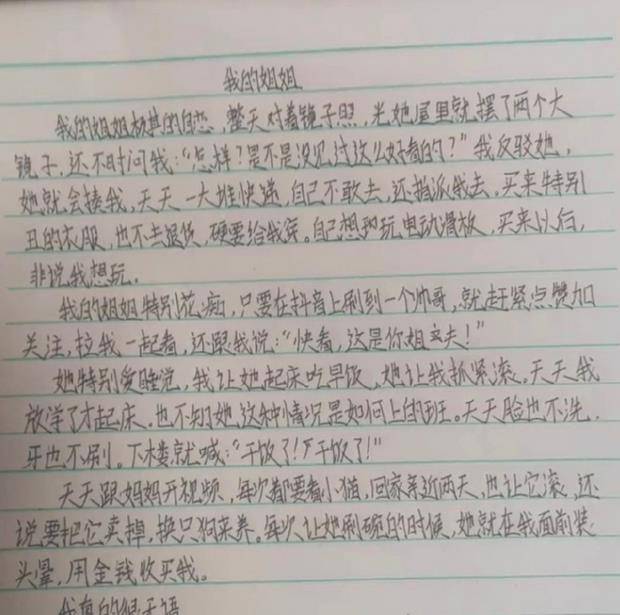 我的姐姐
我的姐姐极其的自恋,整天对着镜子照,光她屋里就摆了两个大
镜子,还不时问我:“怎样?是不是没见过这么好看的?”我反驳她,
她就会揍我,天天一大堆快递,自己不敢去,还指派我去,买来特别
丑的衣服,也不去退货,硬要给我穿。自己想玩电动滑板,买来以后,
非说我想玩。
我的姐姐特别花痴,只要在抖音上刷到一个帅哥,就赶紧点赞加
关注,拉我一起看,还跟我说:“快看,这是你姐丈夫!”
她特别爱睡觉,我让她起床吃早饭,她让我抓紧滚。天天我
放学了才起床。也不知她这种情况是如何上的班。天天脸也不洗,
牙也不刷。下楼就喊:“干饭了!干饭了!”
天天跟妈妈开视频,每次都要看小猫,回家亲近两天,也让它滚,还
说要把它卖掉,换只狗来养。每次让她刷碗的时候,她就在我面前装
头晕,用金钱收买我。
我真的很无语